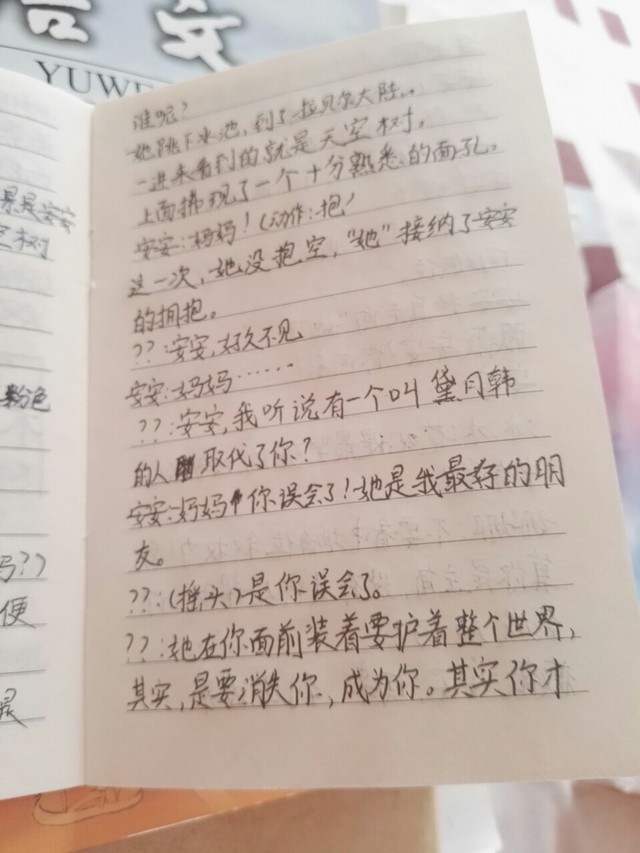 语文
YUWE
谁呢?
她跳下水池,到了拉贝尔大陆。
一进来看到的就是天空树,
上面拂现了一个十分熟悉的面孔。
安安:妈妈!(动作:抱)
这一次,她没抱空,“她”接纳了安安
的拥抱。
??:安安,好久不见
安安:妈妈……
??:安安,我听说有一个叫黛月韩
的人 取代了你?
安安:妈妈 你误会了!她是我最好的朋
友。
??:(摇头)是你误会了。
??:她在你面前装着要护着整个世界,
其实,是要消失你,成为你。其实你才
是安安
树
粉色
吗??)
便